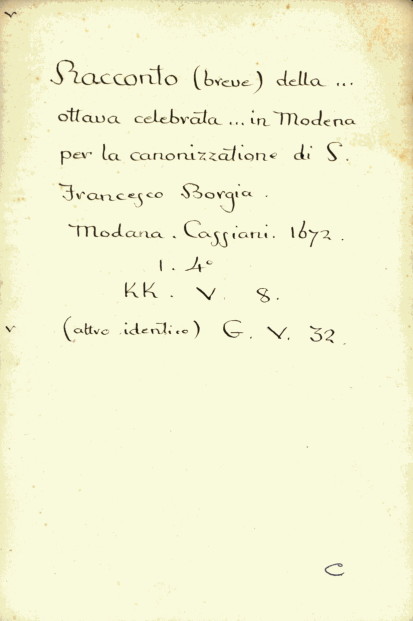 Racconto (breve) della ...
ottava celebrata ... in Modena
per la canonizzatione di S.
Francesco Borgia.
Modana. Cassiani. 1672.
1. 4°
KK. V. 8.
(altro identico) G. V. 32.
C